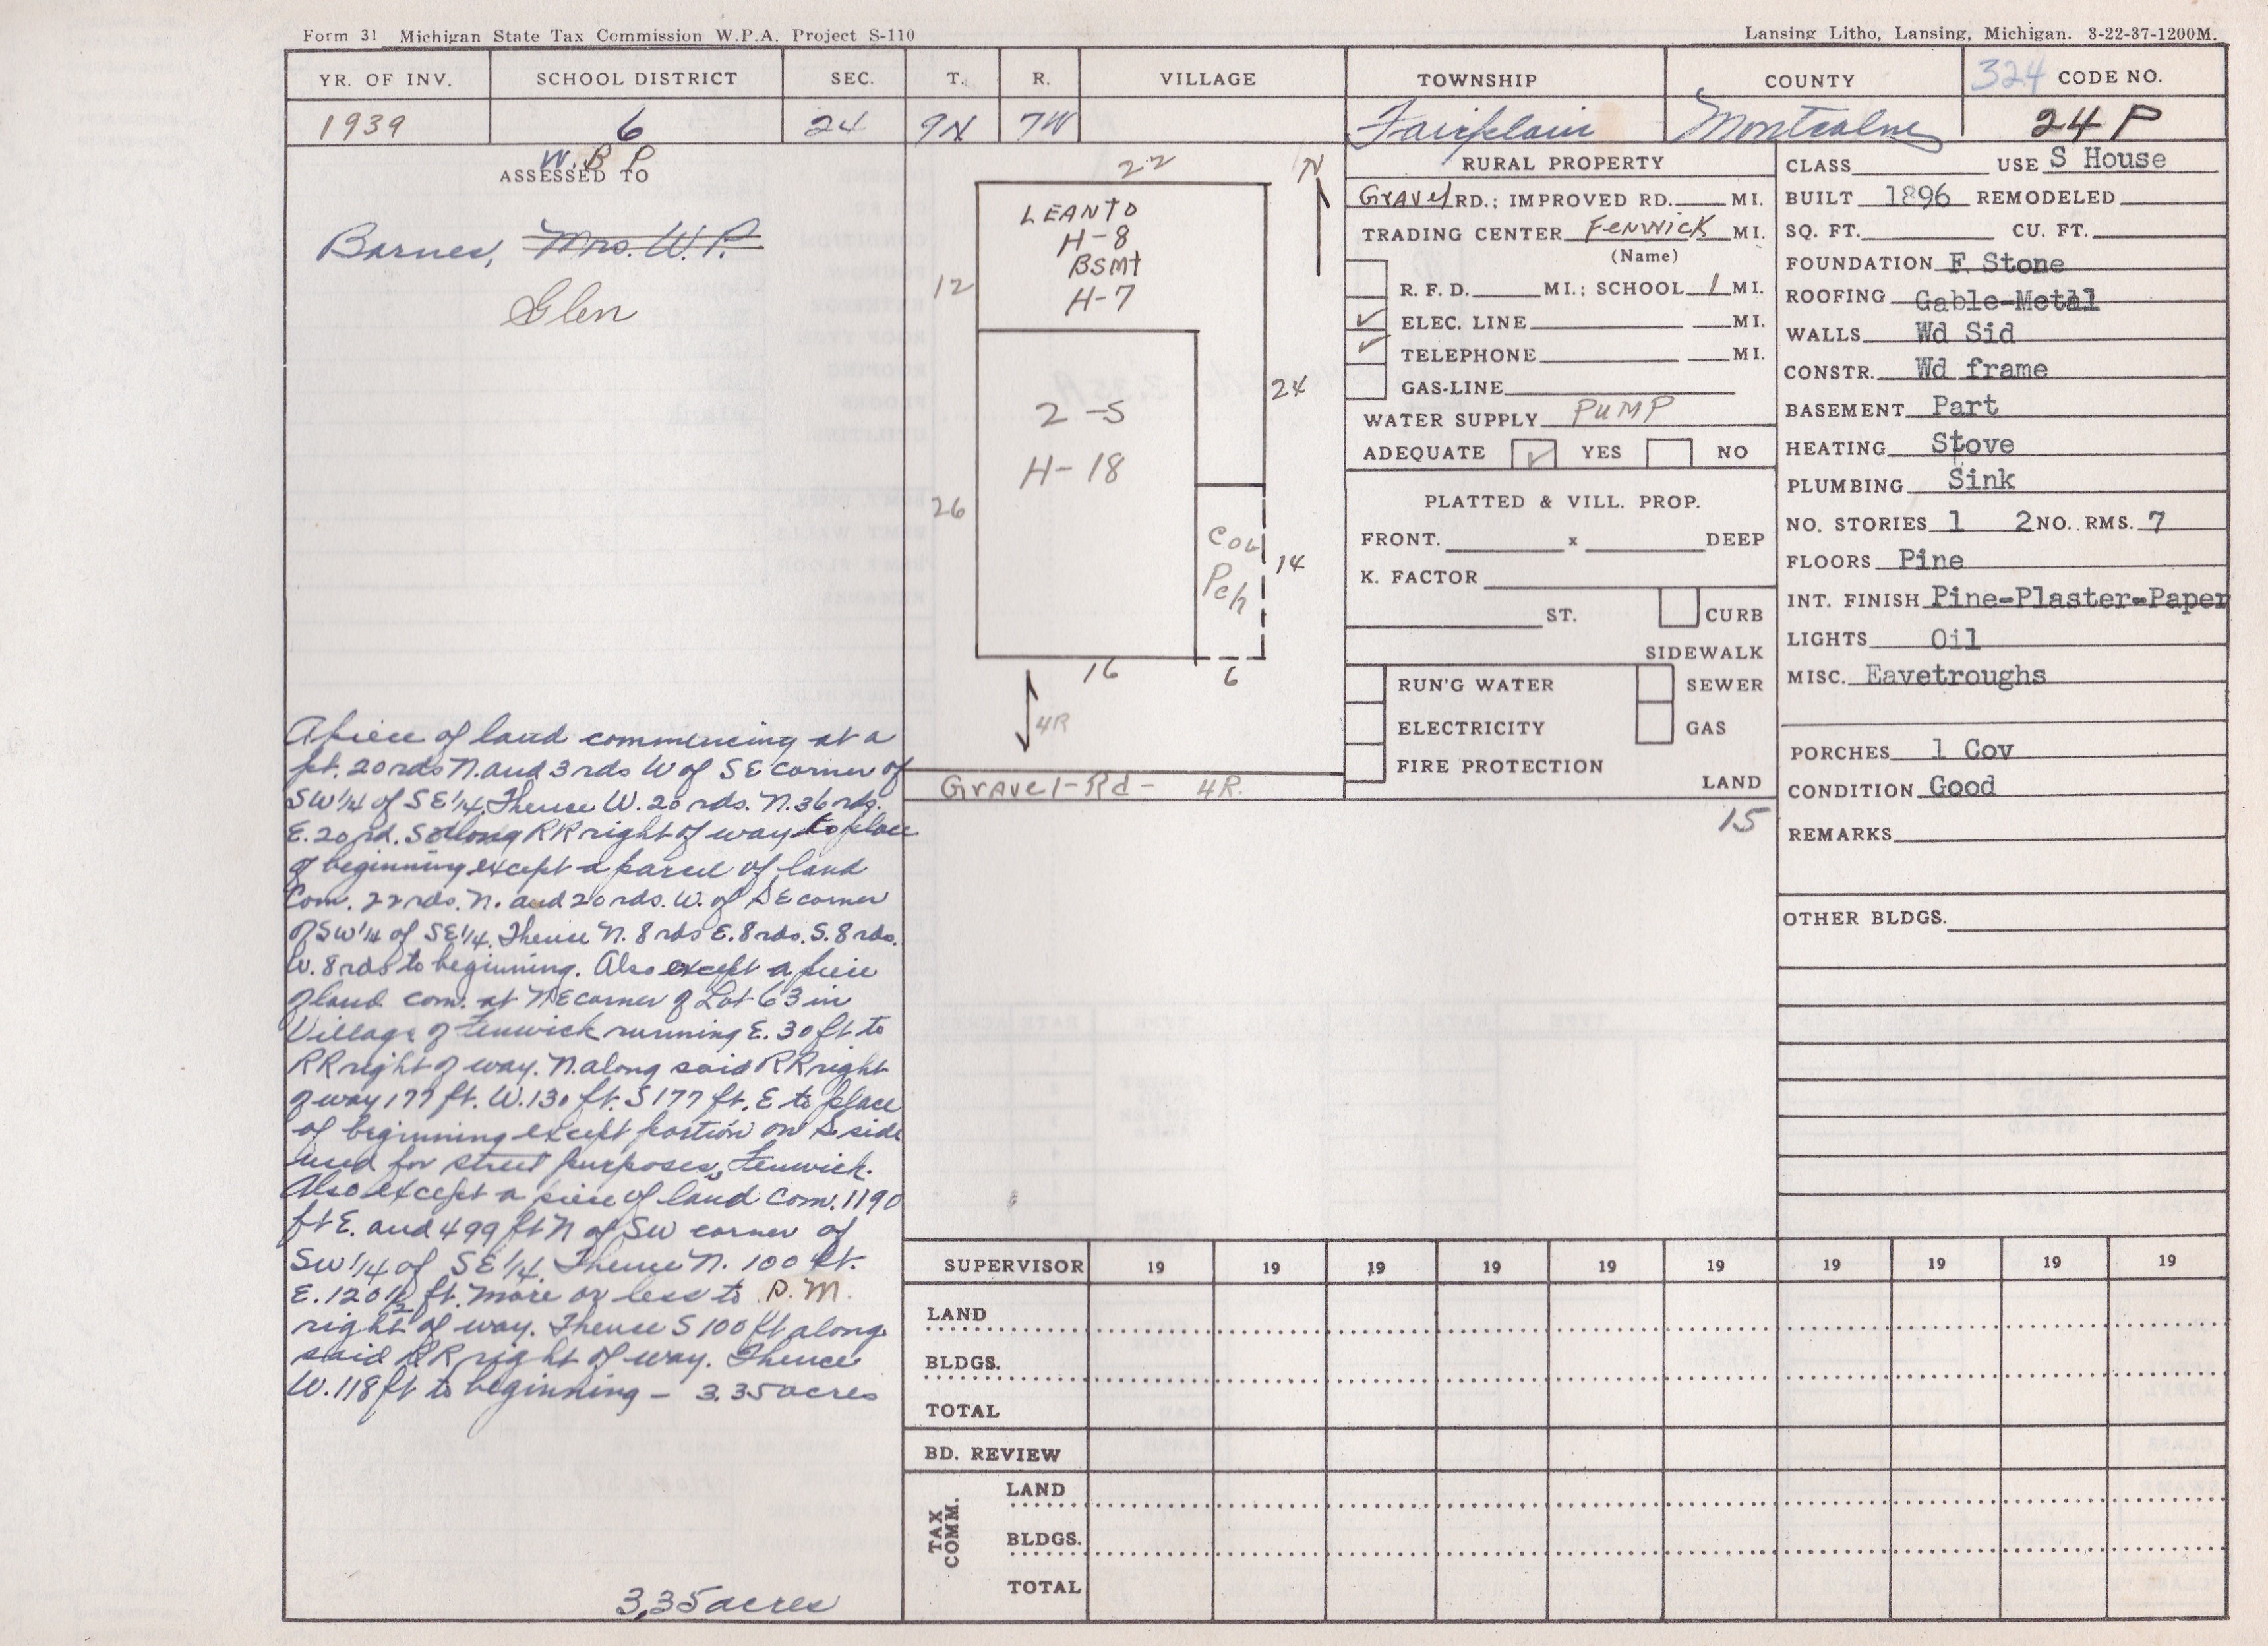 Form 31 Michigan State Tax Commission W.P.A. Project S-110
Lansing Litho, Lansing, Michigan. 3-22-37-1200M.
YR. OF INV. SCHOOL DISTRICT SEC. T. R. VILLAGE TOWNSHIP COUNTY 324 CODE NO.
1939 6 24 9N 7W Fairplain Montcalm 24 P
W. B P.
ASSESSED TO
Barnes, Mrs. W.P.
Glen
A piece of land commencing at a
pt. 20 rds N. and 3 rds W of SE corner of
SW 1/4 of SE 1/4. Thence W. 20 rds. N. 36 rds.
E. 20 rd. S along RR right of way to place
of beginning except a parcel of land
Com. 22 rds. N. and 20 rds. W. of SE corner
of SW 1/4 of SE 1/4. Thence N. 8 rds E. 8 rds. S. 8 rds.
W. 8 rds to beginning. Also except a piece
of land com. at NE corner of Lot 63 in
Village of Fenwick running E. 30 ft to
RR right of way. N. along said RR right
of way 177 ft. W. 130 ft. S 177 ft. E to place
of beginning except portion on S side
used for street purposes, Fenwick.
Also except a piece of land com. 1190
ft E. and 499 ft N of SW corner of
SW 1/4 of SE 1/4. Thence N. 100 ft.
E. 120 1/2 ft. more or less to P.M.
right of way. Thence S 100 ft along
said RR right of way. Thence
W. 118 ft to beginning - 3.35 acres
3.35 acres
22
N
LEANTO
H-8
BSMT
H-7
12
24
2-S
H-18
26
Cov
Pch
14
16
6
4R
Gravel-Rd- 4R.
RURAL PROPERTY
Gravel RD.; IMPROVED RD. MI.
TRADING CENTER Fenwick MI.
(Name)
R. F. D. MI.; SCHOOL 1 MI.
ELEC. LINE MI.
TELEPHONE MI.
GAS-LINE
WATER SUPPLY PUMP
ADEQUATE YES NO
PLATTED & VILL. PROP.
FRONT. x DEEP
K. FACTOR
ST. CURB
SIDEWALK
RUN'G WATER SEWER
ELECTRICITY GAS
FIRE PROTECTION
LAND
15
CLASS USE S House
BUILT 1896 REMODELED
SQ. FT. CU. FT.
FOUNDATION F. Stone
ROOFING Gable-Metal
WALLS Wd Sid
CONSTR. Wd frame
BASEMENT Part
HEATING Stove
PLUMBING Sink
NO. STORIES 1 2 NO. RMS. 7
FLOORS Pine
INT. FINISH Pine-Plaster-Paper
LIGHTS Oil
MISC. Eavetroughs
PORCHES 1 Cov
CONDITION Good
REMARKS
OTHER BLDGS.
SUPERVISOR 19 19 19 19 19 19 19 19 19 19
LAND
BLDGS.
TOTAL
BD. REVIEW
TAX COMM.
LAND
BLDGS.
TOTAL